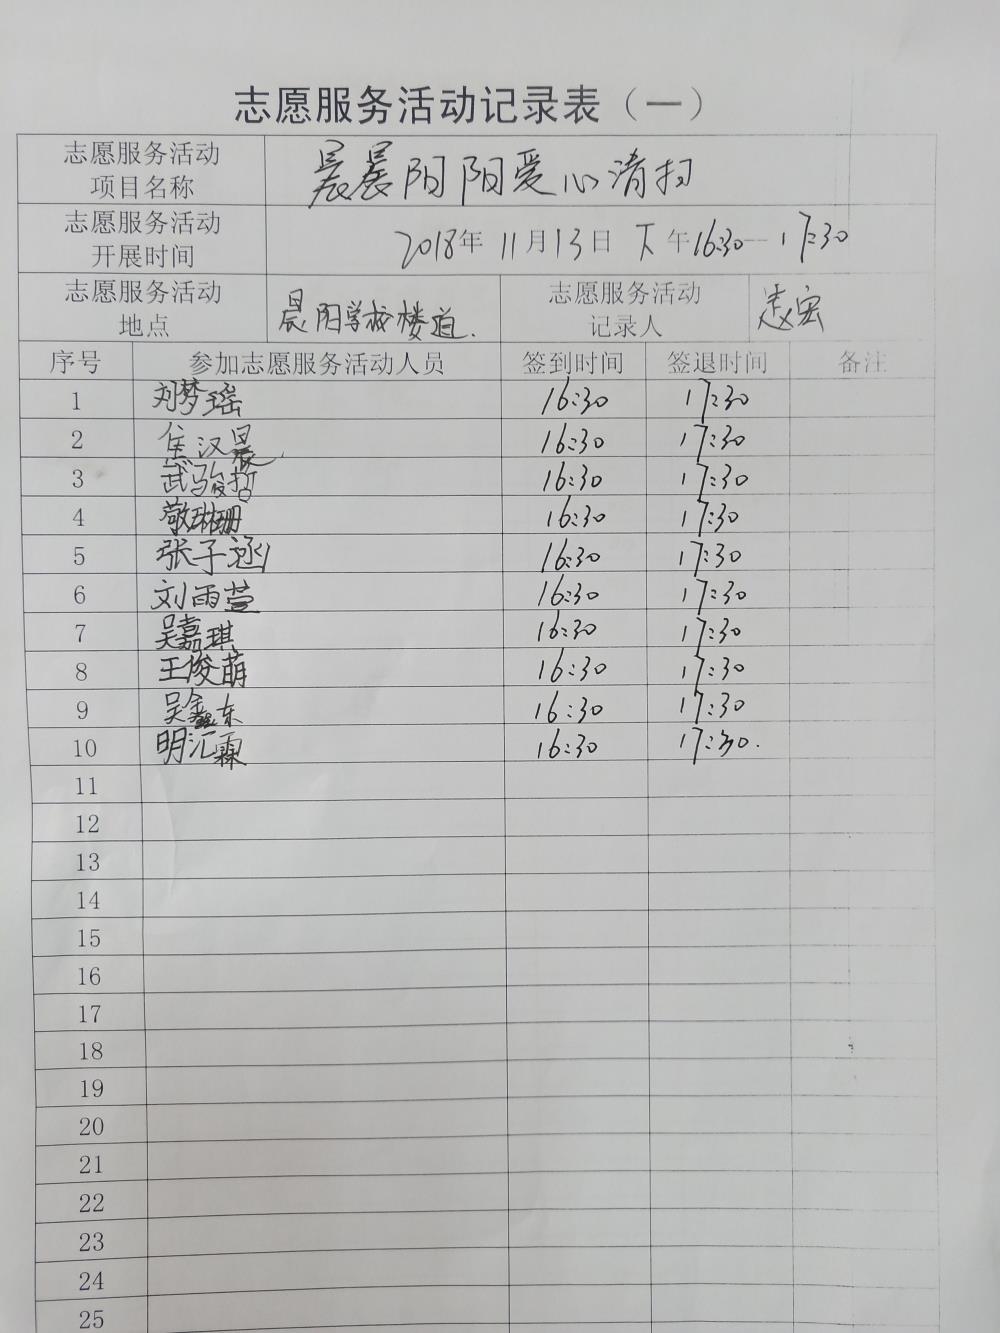 志愿服务活动记录表（一）
志愿服务活动
项目名称
晨晨阳阳爱心清扫
志愿服务活动
开展时间
2018年 11月13日 下午16:30—17:30
志愿服务活动
地点
晨阳学校楼道.
志愿服务活动
记录人
宏
序号 参加志愿服务活动人员 签到时间 签退时间 备注
1 刘梦瑶 16:30 17:30
2 焦汉晨 16:30 17:30
3 武骏哲 16:30 17:30
4 敬琳珊 16:30 17:30
5 张子涵 16:30 17:30
6 刘雨萱 16:30 17:30
7 吴嘉琪 16:30 17:30
8 王俊萌 16:30 17:30
9 吴鑫东 16:30 17:30
10 明汇霖 16:30 17:30.
11
12
13
14
15
16
17
18
19
20
21
22
23
24
25